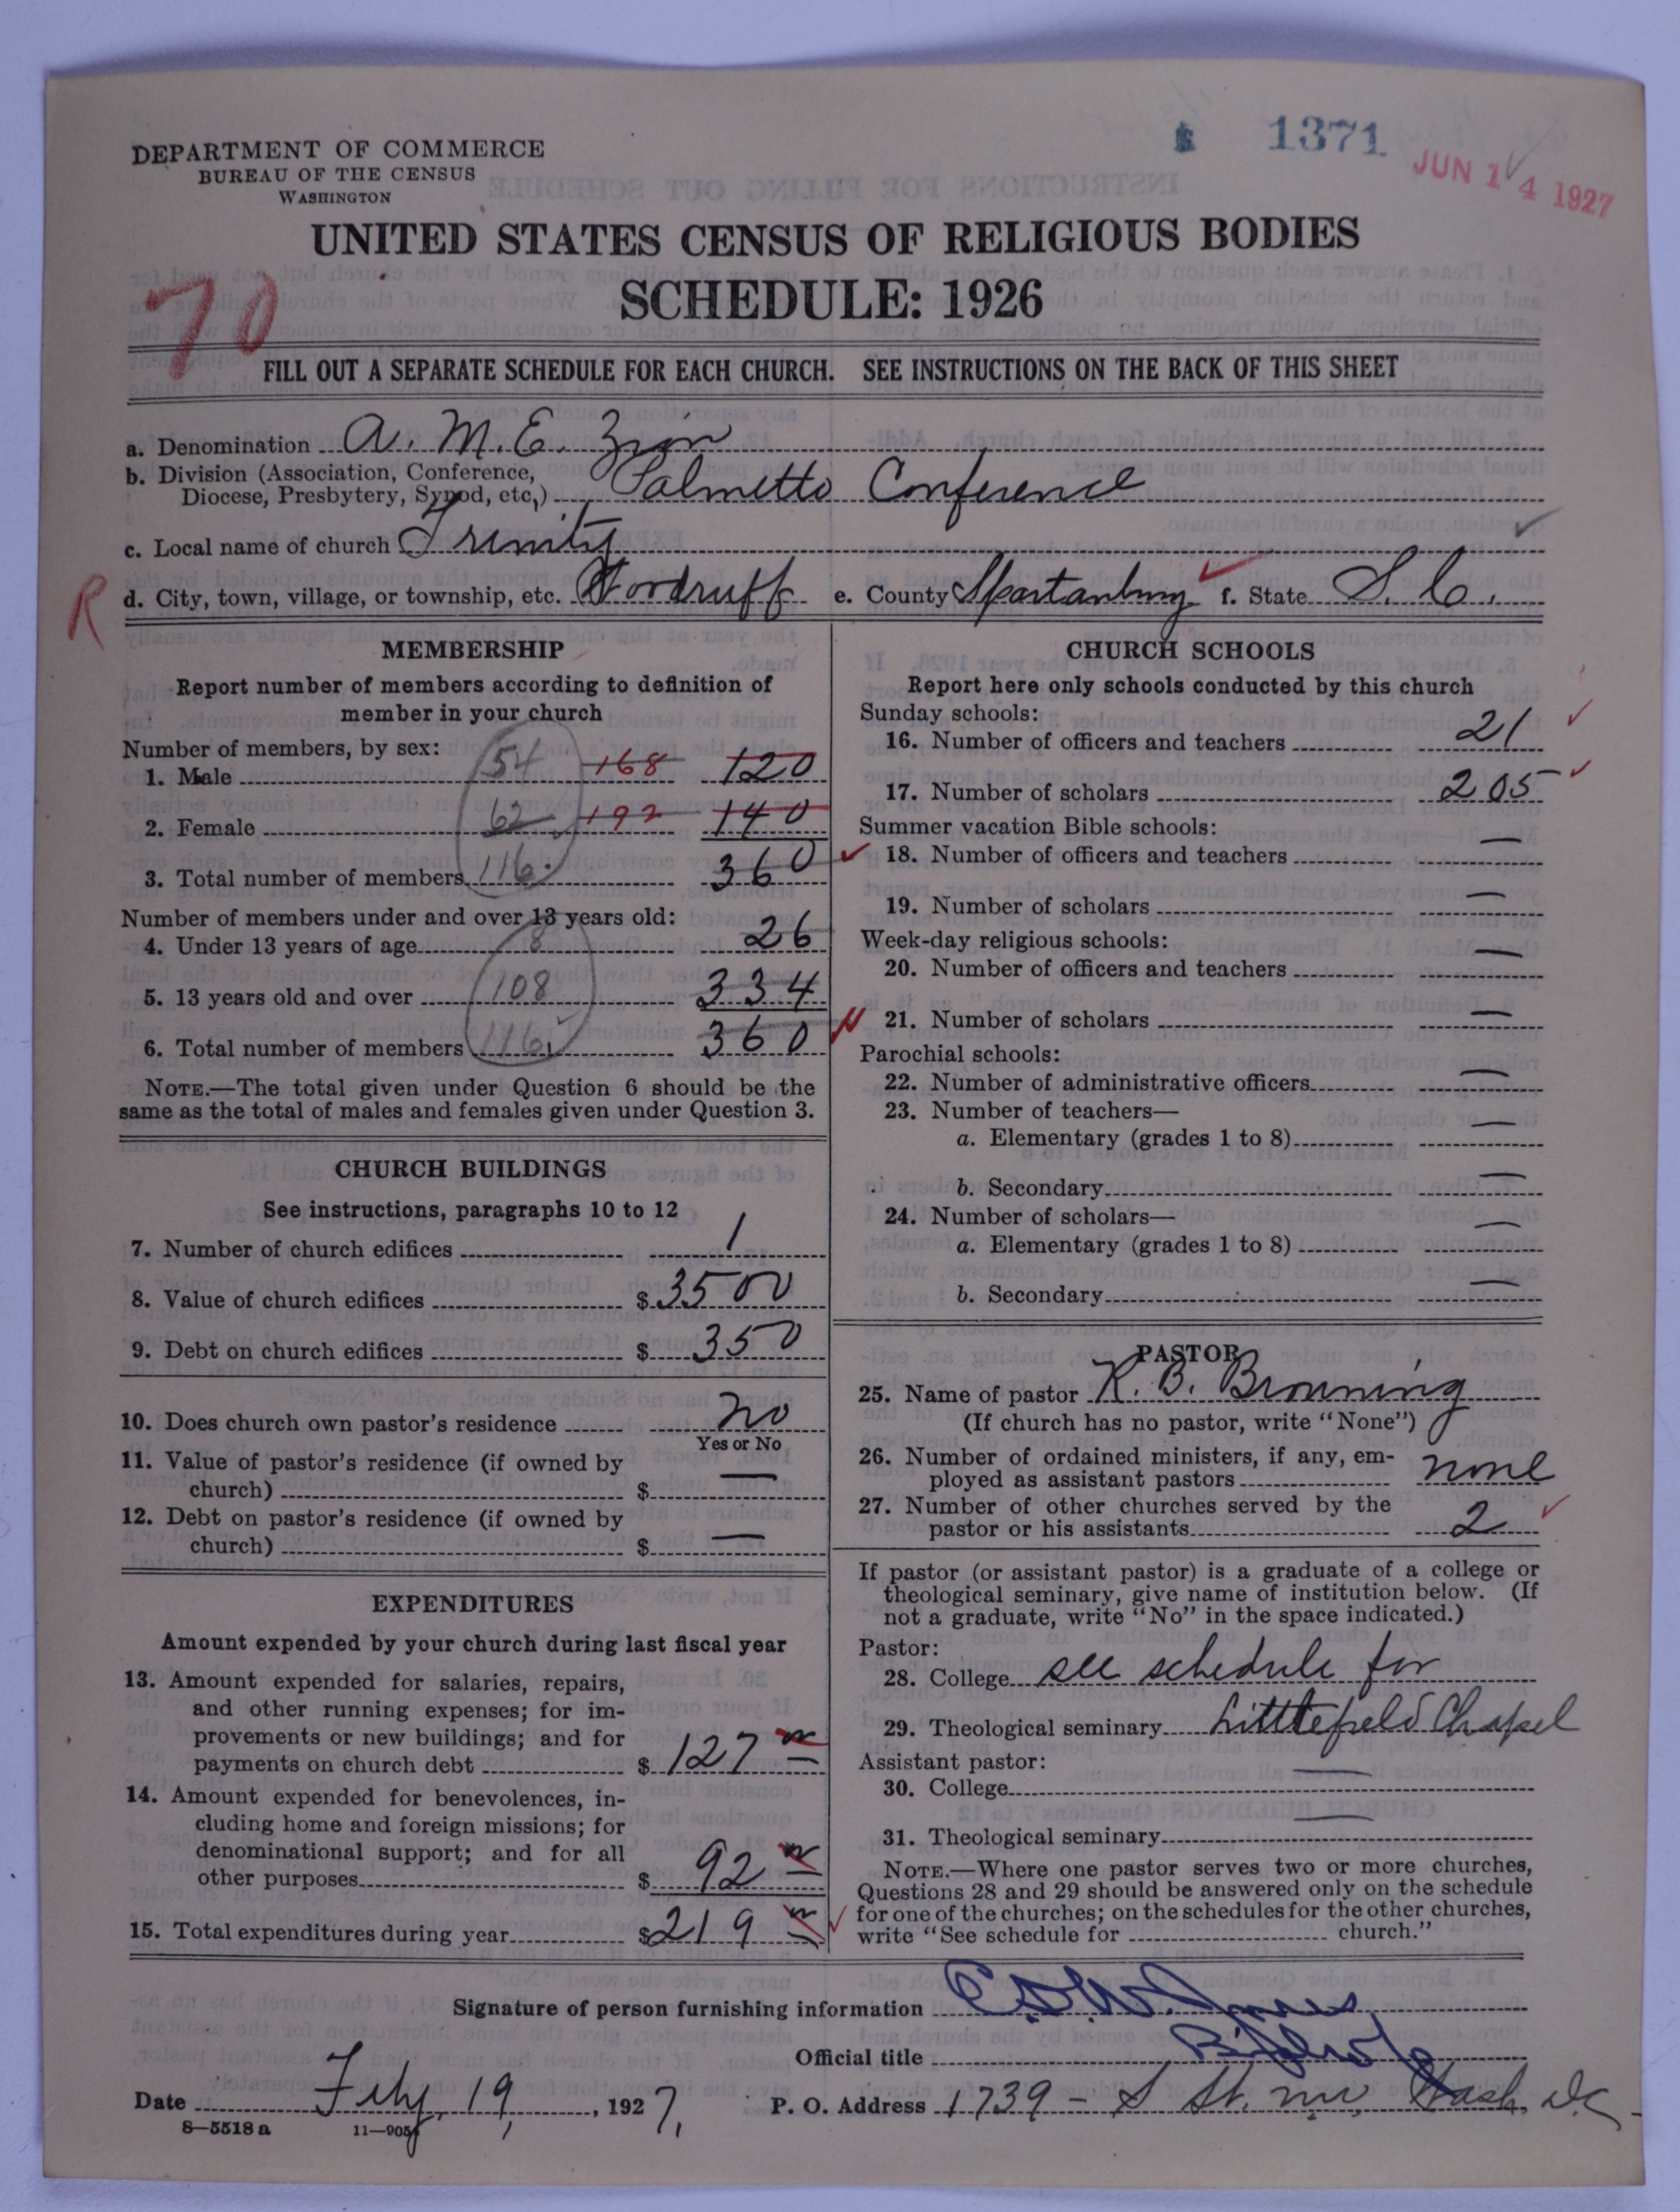 1371
JUN 14 1927
DEPARTMENT OF COMMERCE
BUREAU OF THE CENSUS
WASHINGTON
UNITED STATES CENSUS OF RELIGIOUS BODIES
SCHEDULE: 1926
70
FILL OUT A SEPARATE SCHEDULE FOR EACH CHURCH. SEE INSTRUCTIONS ON THE BACK OF THIS SHEET
a. Denomination A. M. E. Zion
b. Division (Association, Conference,
Diocese, Presbytery, Synod, etc.) Palmetto Conference
c. Local name of church Trinity
R
d. City, town, village, or township, etc. Woodruff e. County Spartanburg f. State S. C.
MEMBERSHIP
Report number of members according to definition of
member in your church
Number of members, by sex:
1. Male 54 168 120
2. Female 62 192 140
3. Total number of members 116 360
Number of members under and over 13 years old:
4. Under 13 years of age 8 26
5. 13 years old and over 108 334
6. Total number of members 116 360
NOTE.—The total given under Question 6 should be the
same as the total of males and females given under Question 3.
CHURCH BUILDINGS
See instructions, paragraphs 10 to 12
7. Number of church edifices 1
8. Value of church edifices $ 3500
9. Debt on church edifices $ 350
10. Does church own pastor's residence No
Yes or No
11. Value of pastor's residence (if owned by
church) $ —
12. Debt on pastor's residence (if owned by
church) $ —
EXPENDITURES
Amount expended by your church during last fiscal year
13. Amount expended for salaries, repairs,
and other running expenses; for im-
provements or new buildings; and for
payments on church debt $ 127
14. Amount expended for benevolences, in-
cluding home and foreign missions; for
denominational support; and for all
other purposes $ 92
15. Total expenditures during year $ 219
CHURCH SCHOOLS
Report here only schools conducted by this church
Sunday schools:
16. Number of officers and teachers 21
17. Number of scholars 205
Summer vacation Bible schools:
18. Number of officers and teachers —
19. Number of scholars —
Week-day religious schools:
20. Number of officers and teachers —
21. Number of scholars —
Parochial schools:
22. Number of administrative officers —
23. Number of teachers—
a. Elementary (grades 1 to 8) —
b. Secondary —
24. Number of scholars—
a. Elementary (grades 1 to 8) —
b. Secondary —
PASTOR
25. Name of pastor R. B. Browning
(If church has no pastor, write "None")
26. Number of ordained ministers, if any, em-
ployed as assistant pastors none
27. Number of other churches served by the
pastor or his assistants 2
If pastor (or assistant pastor) is a graduate of a college or
theological seminary, give name of institution below. (If
not a graduate, write "No" in the space indicated.)
Pastor:
28. College see schedule for
29. Theological seminary Littlefield Chapel
Assistant pastor:
30. College —
31. Theological seminary —
NOTE.—Where one pastor serves two or more churches,
Questions 28 and 29 should be answered only on the schedule
for one of the churches; on the schedules for the other churches,
write "See schedule for church."
Signature of person furnishing information
Official title
Date Feby, 19, 1927, P. O. Address 1739 - S St. N.W. Wash. D.C.
8—5518 a 11—9051